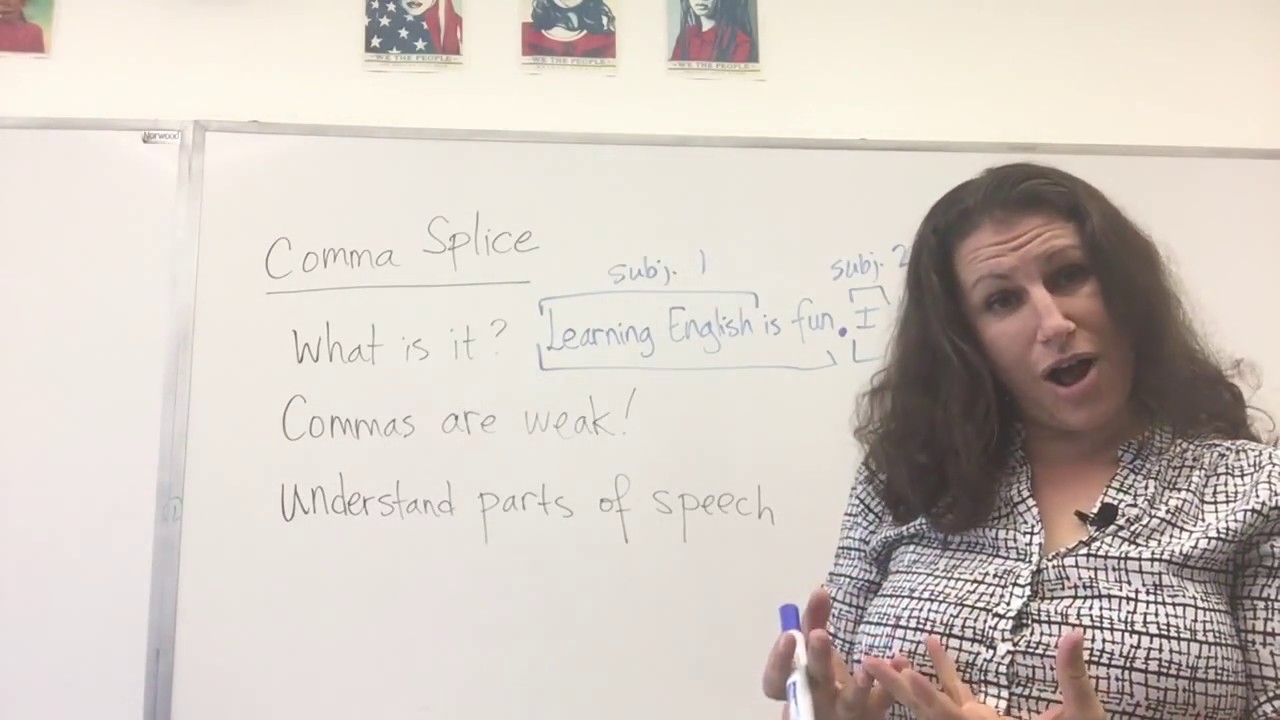 WE THE PEOPLE
WE THE PEOPLE
WE THE PEOPLE
Norwood
Comma Splice
subj. 1
subj. 2
What is it?
Learning English is fun. I
Commas are weak!
Understand parts of speech